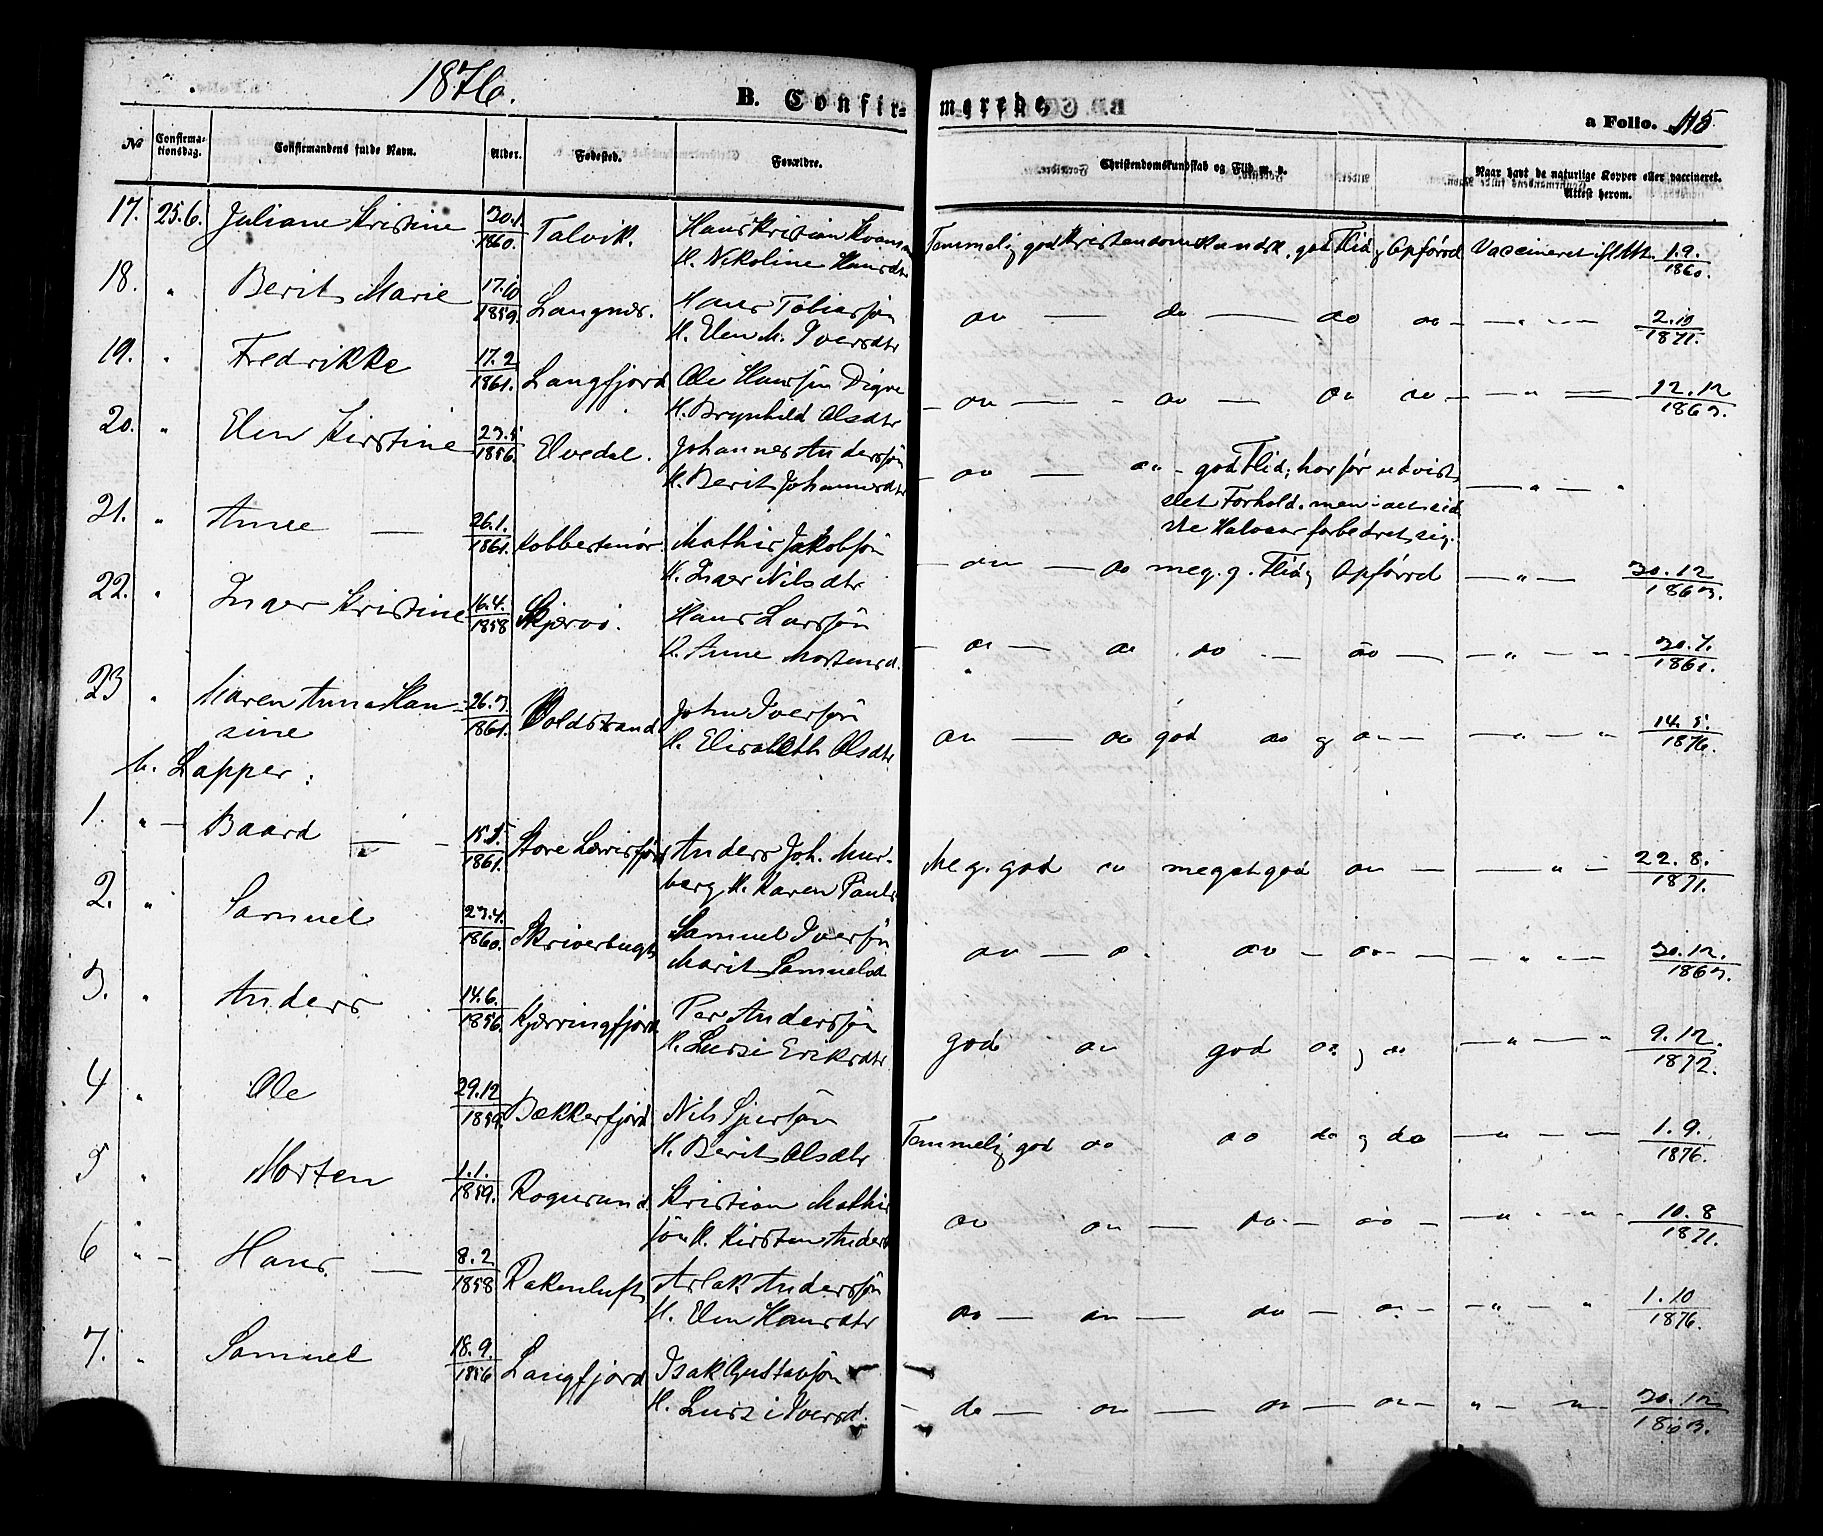 1876.
B. Confir=
merede
a Folio. 115
No
Confirma-
tionsdag.
Confirmandens fulde Navn.
Alder.
Fødested.
Forældre.
Christendomskundskab og Flid m. v.
Naar havt de naturlige Kopper eller vaccineret.
Attest herom.
17. 25.6. Juliane Kristine 30.1. 1860. Talvik. Hans Kristian
H. Nikoline Hansdtr
Temmelig god Kristendomskundsk. god Flid og Opførsel Vaccineret ifl. Att. 1.9. 1860.
18. " Berit Marie 17.10 1859. Langnes. Hans Tobiassøn
H. Elen M. Iversdtr
do — do — do do — — " — 2.10 1871.
19. " Fredrikke 17.2 1861. Langfjord Ole Hanssøn Digre
H. Brynhild Olsdtr
— do — - do — do do — — " — 12.12 1863.
20. " Elen Kirstine 23.5 1856. Elvedal. Johannes Anderssøn
H. Berit Johannesdtr
— do — do - god Flid; har før udvist
slet Forhold, men i det sid
ste Halvaar forbedret sig.
— " — "
21. " Anne — 26.1. 1861. Kobbernør Mathis Jakobsøn
H. Inger Nilsdtr
— do — do meg. g. Flid og Opførsel — " — 30.12 1863.
22. " Inger Kristine 16.4. 1858 Skjervø. Hans Larssøn
H. Anne Mortensd.
— do — do do — do — — " — " 30.7. 1861.
23 " Maren Anne Han=
sine 26.3. 1861. Koldstrand John Iversøn
H. Elisabeth Olsdtr
do — do god do og do — — " — " 14.5. 1876.
b. Lapper:
1. " — Baard — 15.1. 1861. Store Lerrisfjord Anders Joh. Mur-
berg H. Karen Pauls
Meg. god do meget god do — — " — 22.8. 1871.
2. " Samuel 23.4. 1860. Skriverbugt Samuel Iversøn
Marit Samuelsd
do — do do — do — — " — 30.12. 1863.
3. " Anders 14.6. 1856. Kjærringfjord Per Anderssøn
H. Lussi Eriksdtr
god do god do og do — " — " 9.12. 1872.
4 " Ole 29.12 1859. Bækkerfjord Nils Sjursøn
H. Berit Olsdtr
Temmelig god do do do og do — " — — 1.9. 1876.
5 " Morten 1.1. 1859. Rognsund. Kristian Mathis
søn H. Kirsten Anders
do do — do — do — — " — " 10.8 1871.
6 " — Hans. — 8.2 1858 Aslak Anderssøn
H. Elen Hansdtr
do — do — do — do — — " — " 1.10 1876.
7. " Samuel 18.9. 1856 Langfjord Isak Gustavsøn
H. Lussi Iversd.
— do — do — do — do — " — " — 30.12 1863.